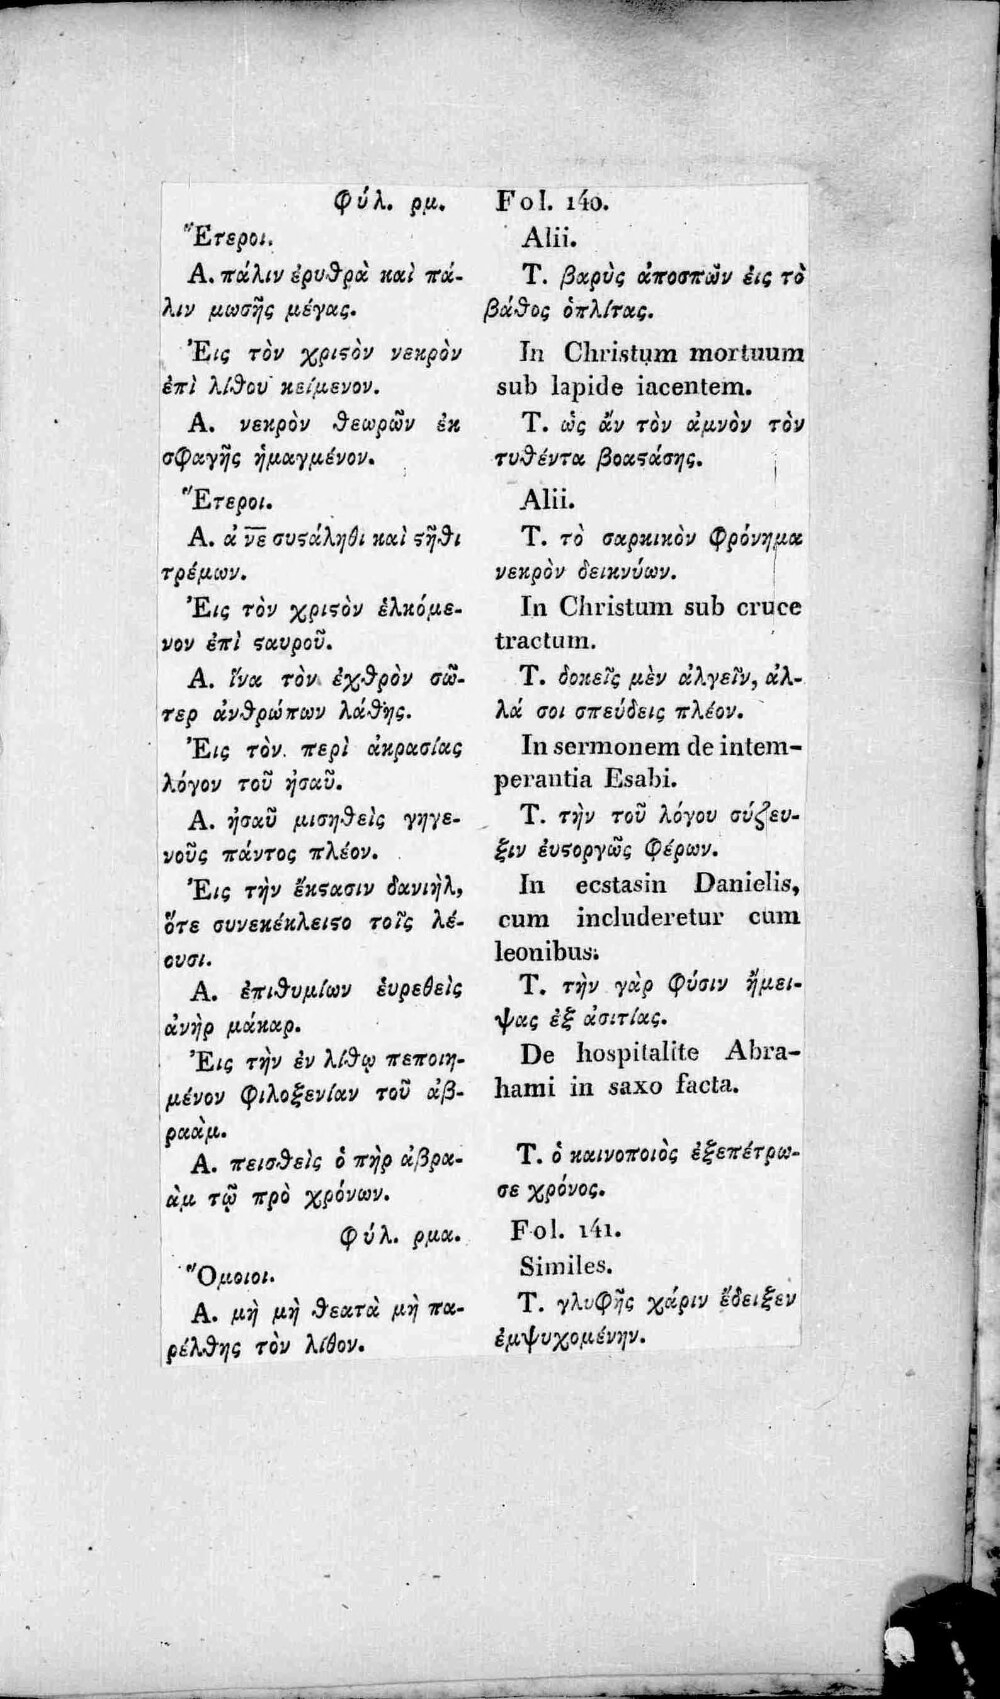 Φύλ. ρμ.
Ἕτεροι.
Α. πάλιν ἐρυθρὰ καὶ πά-
λιν μωσῆς μέγας.
Ἐις τὸν χριϛὸν νεκρὸν
ἐπὶ λίθου κείμενον.
Α. νεκρὸν θεωρῶν ἐκ
σφαγῆς ἡμαγμένον.
Ἕτεροι.
Α. ἀ νε συϛάληθι καὶ ϛῆθι
τρέμων.
Ἐις τὸν χριϛὸν ἑλκόμε-
νον ἐπὶ ϛαυροῦ.
Α. ἵνα τὸν ἐχθρὸν σῶ-
τερ ἀνθρώπων λάθῃς.
Ἐις τὸν περὶ ἀκρασίας
λόγον τοῦ ἠσαῦ.
Α. ἠσαῦ μισηθεὶς γηγε-
νοῦς πάντος πλέον.
Ἐις τὴν ἔκϛασιν δανιὴλ,
ὅτε συνεκέκλειϛο τοῖς λέ-
ουσι.
Α. ἐπιθυμίων ἑυρεθεὶς
ἀνὴρ μάκαρ.
Ἐις τὴν ἐν λίθῳ πεποιη-
μένον φιλοξενίαν τοῦ ἀβ-
ραὰμ.
Α. πεισθεὶς ὁ πὴρ ἀβρα-
ὰμ τῷ πρὸ χρόνων.
Φύλ. ρμα.
Ὅμοιοι.
Α. μὴ μὴ θεατὰ μὴ πα-
ρέλθῃς τὸν λίθον.
Fol. 140.
Alii.
Τ. βαρὺς ἀποσπῶν ἐις τὸ
βάθος ὁπλίτας.
In Christum mortuum
sub lapide iacentem.
Τ. ὡς ἄν τὸν ἀμνὸν τὸν
τυθέντα βοαϛάσῃς.
Alii.
Τ. τὸ σαρκικὸν φρόνημα
νεκρὸν δεικνύων.
In Christum sub cruce
tractum.
Τ. δοκεῖς μὲν ἀλγεῖν, ἀλ-
λά σοι σπεύδεις πλέον.
In sermonem de intem-
perantia Esabi.
Τ. τὴν τοῦ λόγου σύζευ-
ξιν ἐυϛοργῶς φέρων.
In ecstasin Danielis,
cum includeretur cum
leonibus.
Τ. τὴν γὰρ φύσιν ἤμει-
ψας ἐξ ἀσιτίας.
De hospitalite Abra-
hami in saxo facta.
Τ. ὁ καινοποιὸς ἐξεπέτρω-
σε χρόνος.
Fol. 141.
Similes.
Τ. γλυφῆς χάριν ἔδειξεν
ἐμψυχομένην.